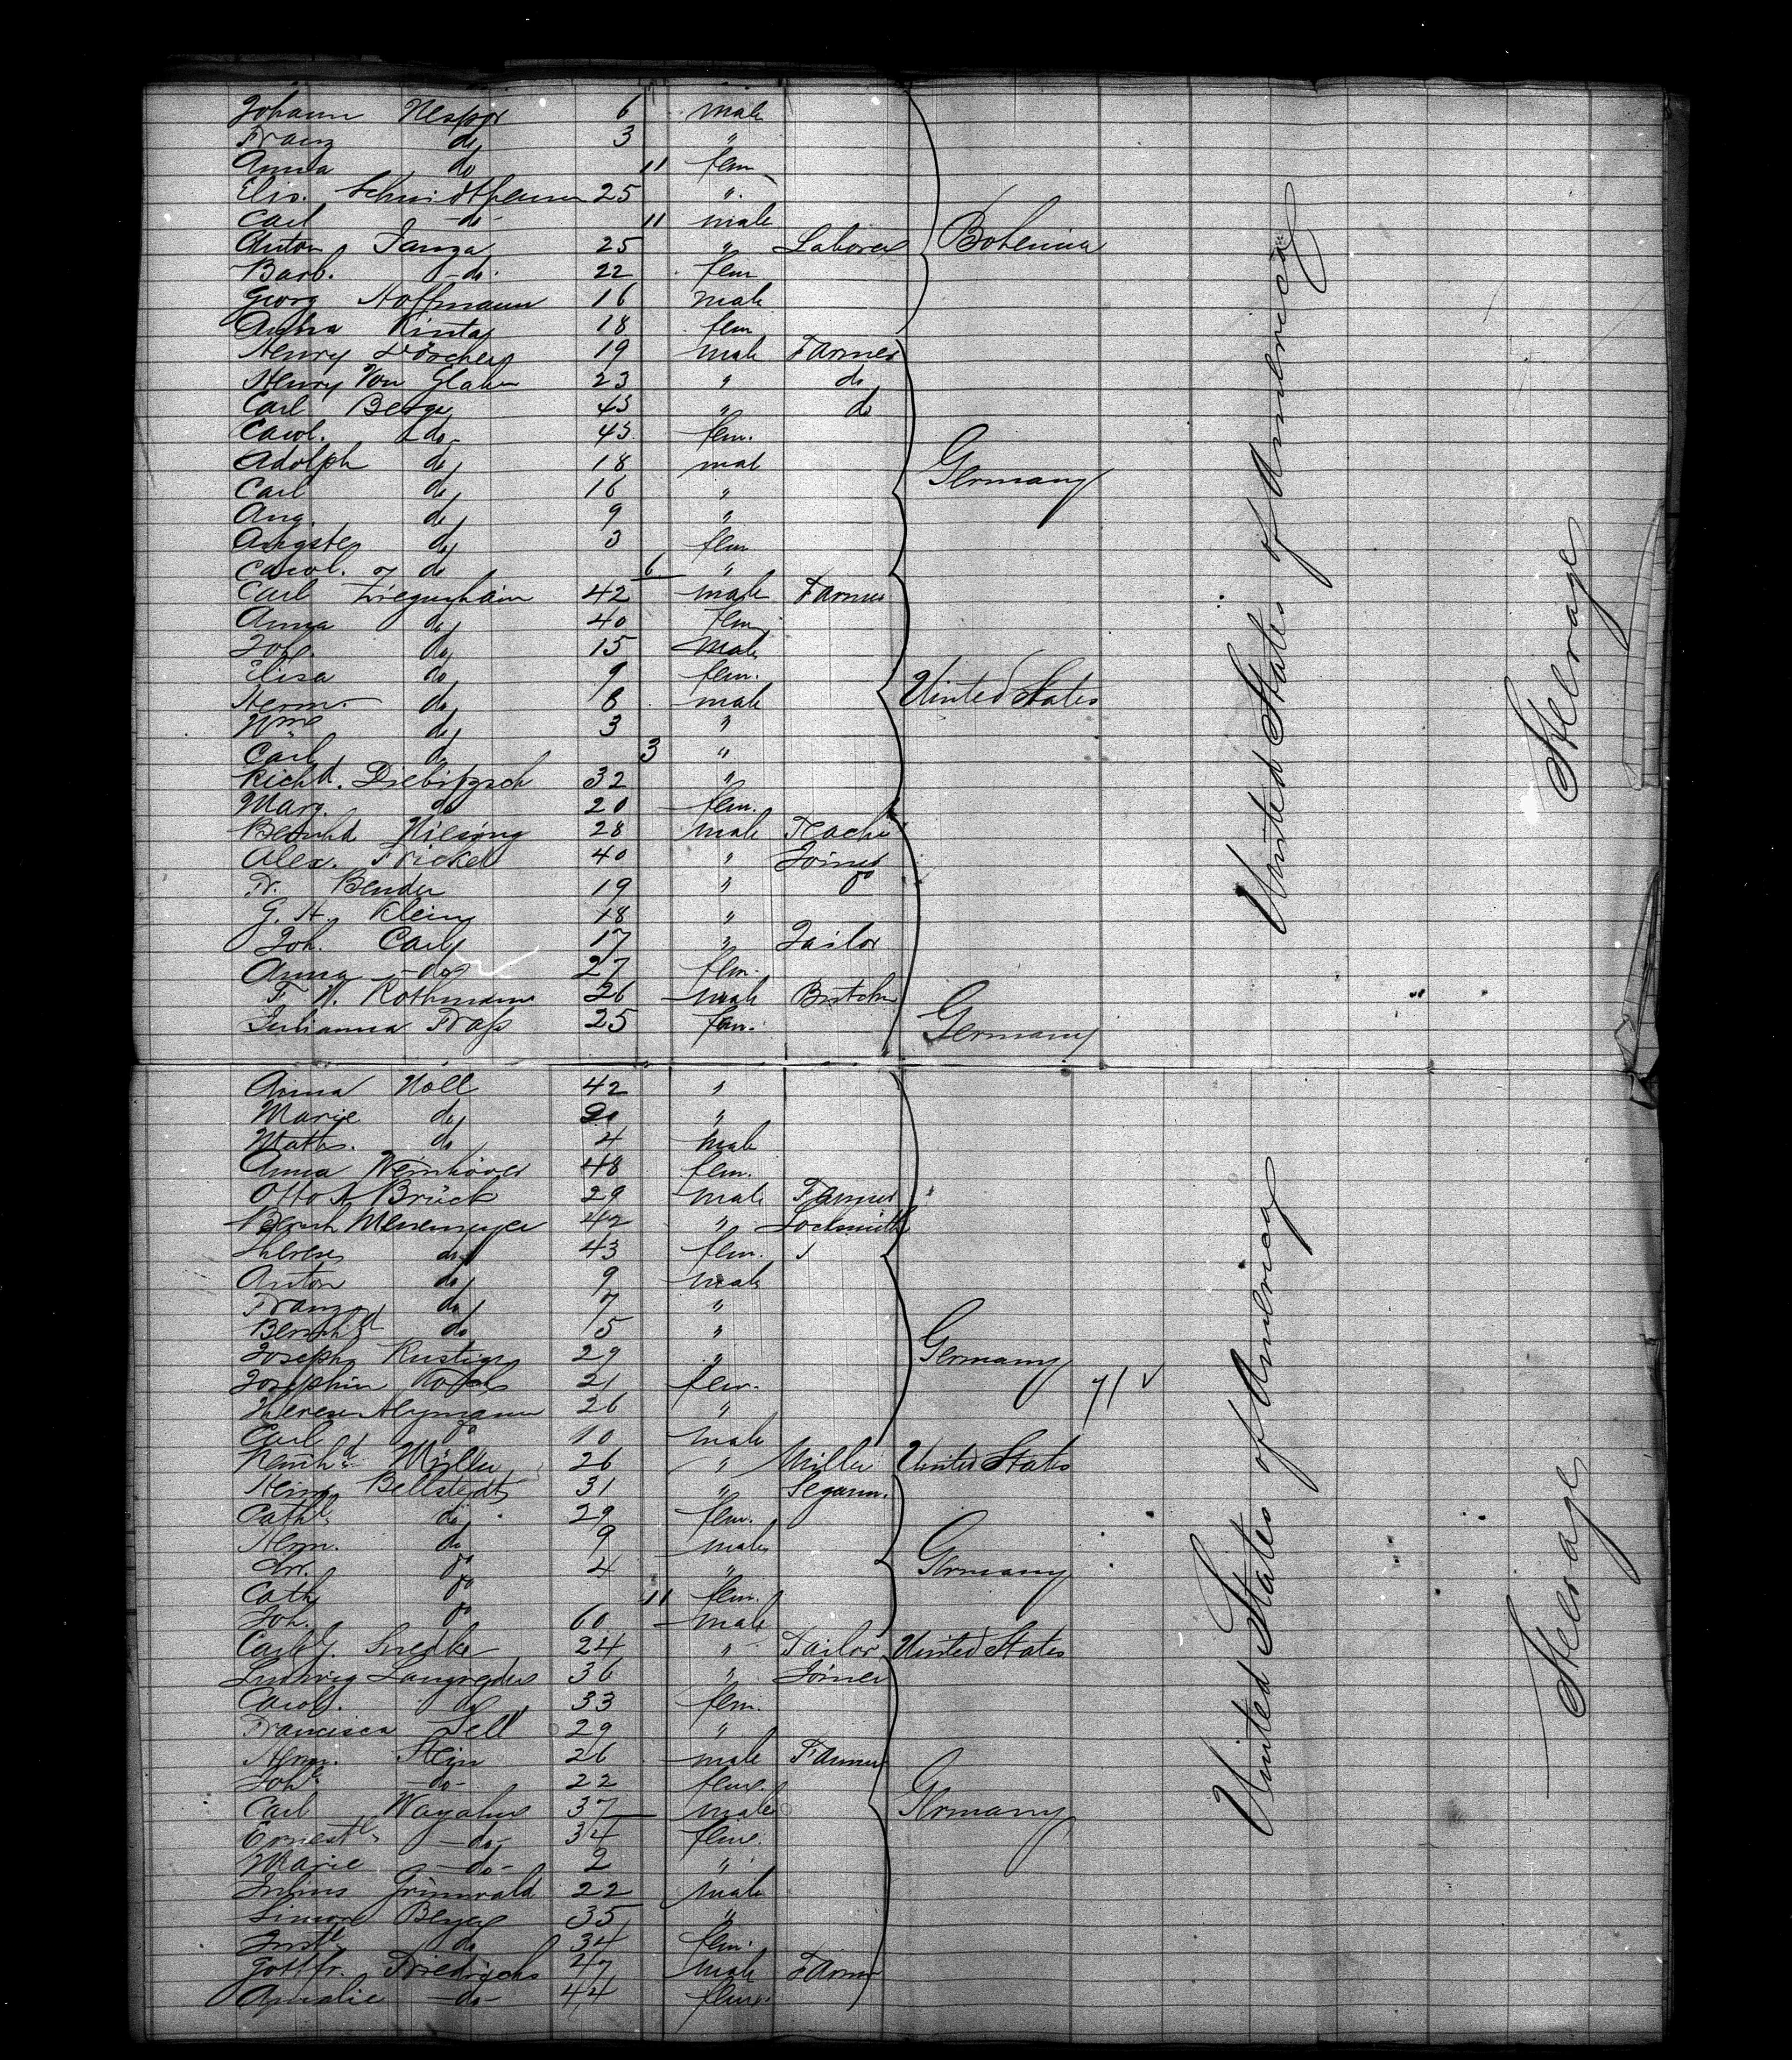 Johann Nespor 6 male
Franz do 3 "
Anna do 11 fem
Elis. 25 "
Carl do 11 male
Anton Janza 25 " Laborer Bohemia
Barb. do 22 fem
Georg Hoffmann 16 male
Anna 18 fem
Henry 19 male Farmer
Henry Von Glahn 23 " do
Carl Berge 43 " do
Carol. do 43 fem.
Adolph do 18 mal Germany
Carl do 16 "
Aug. do 9 "
Augste do 3 fem
Carol. do 6 "
Carl Ziegenhain 42 male Farmer
Anna do 40 fem
Joh. do 15 male
Elisa do 9 fem.
Herm. do 8 male United States
Wm do 3 "
Carl do 3 "
Richd. Diebitzsch 32 "
Marg. do 20 fem.
Bernhd 28 male Teacher
Alex. Frickel 40 " Joiner
Fr. Bender 19 " do
G. H. Klein 18 "
Joh. Carl 17 " Tailor
Anna do 27 fem.
F. W. Rothmann 26 male Butcher
Julianna Frass 25 fem. Germany
United States of America
Steerage
Anna Noll 42 "
Marie do "
Maths. do 4 male
Anna Weinhöver 48 fem.
Otto A Brück 29 male Farmer
Bernh 42 " Locksmith
Therese do 43 fem. "
Anton do 9 male
Franz do 7 "
Bernhd do 5 "
Joseph Rustige 29 " Germany
Josephin 21 fem. 71 ✓
Therese Heymann 26 "
Carl do 10 male
Reinhd Müller 26 " Miller United States
Heinr Bellstedt 31 " Segarm.
Cathe do 29 fem.
Herm. do 9 male
Chr. do 4 " Germany
Cath do 11 fem.
Joh. do 60 male
Carl J. Luedke 24 " Tailor United States
Ludwig 36 " Joiner
Carol. do 33 fem.
Francisca Sell 29 "
Herm. Stein 26 male Farmer
Johe do 22 fem.
Carl 37 male Germany
Erneste do 34 fem.
Marie do 2 "
Julius Grünwald 22 male
Simon Beyer 35 "
Juste do 34 fem.
Gottfr. Friedrichs 47 male Farmer
Amalie do 44 fem.
United States of America
Steerage